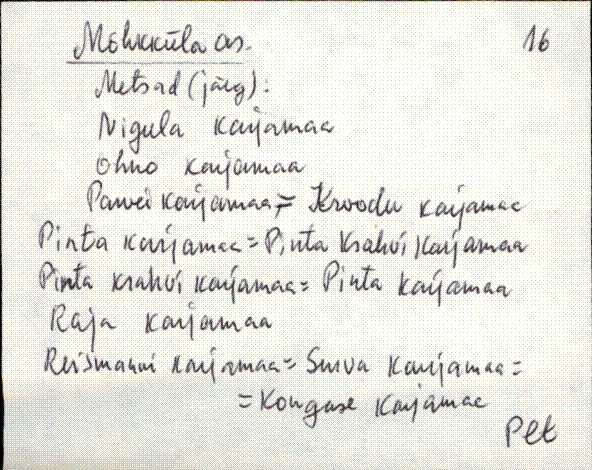 Mehkküla as. 16
Metsad (järg):
Nigula karjamaa
Ohno karjamaa
Pawei karjamaa = Kroodu karjamaa
Pinta karjamaa = Pinta Krahvi karjamaa
Pinta krahvi karjamaa = Pinta karjamaa
Raja karjamaa
Reismanni karjamaa = Surva karjamaa =
= Kongase karjamaa
Pet